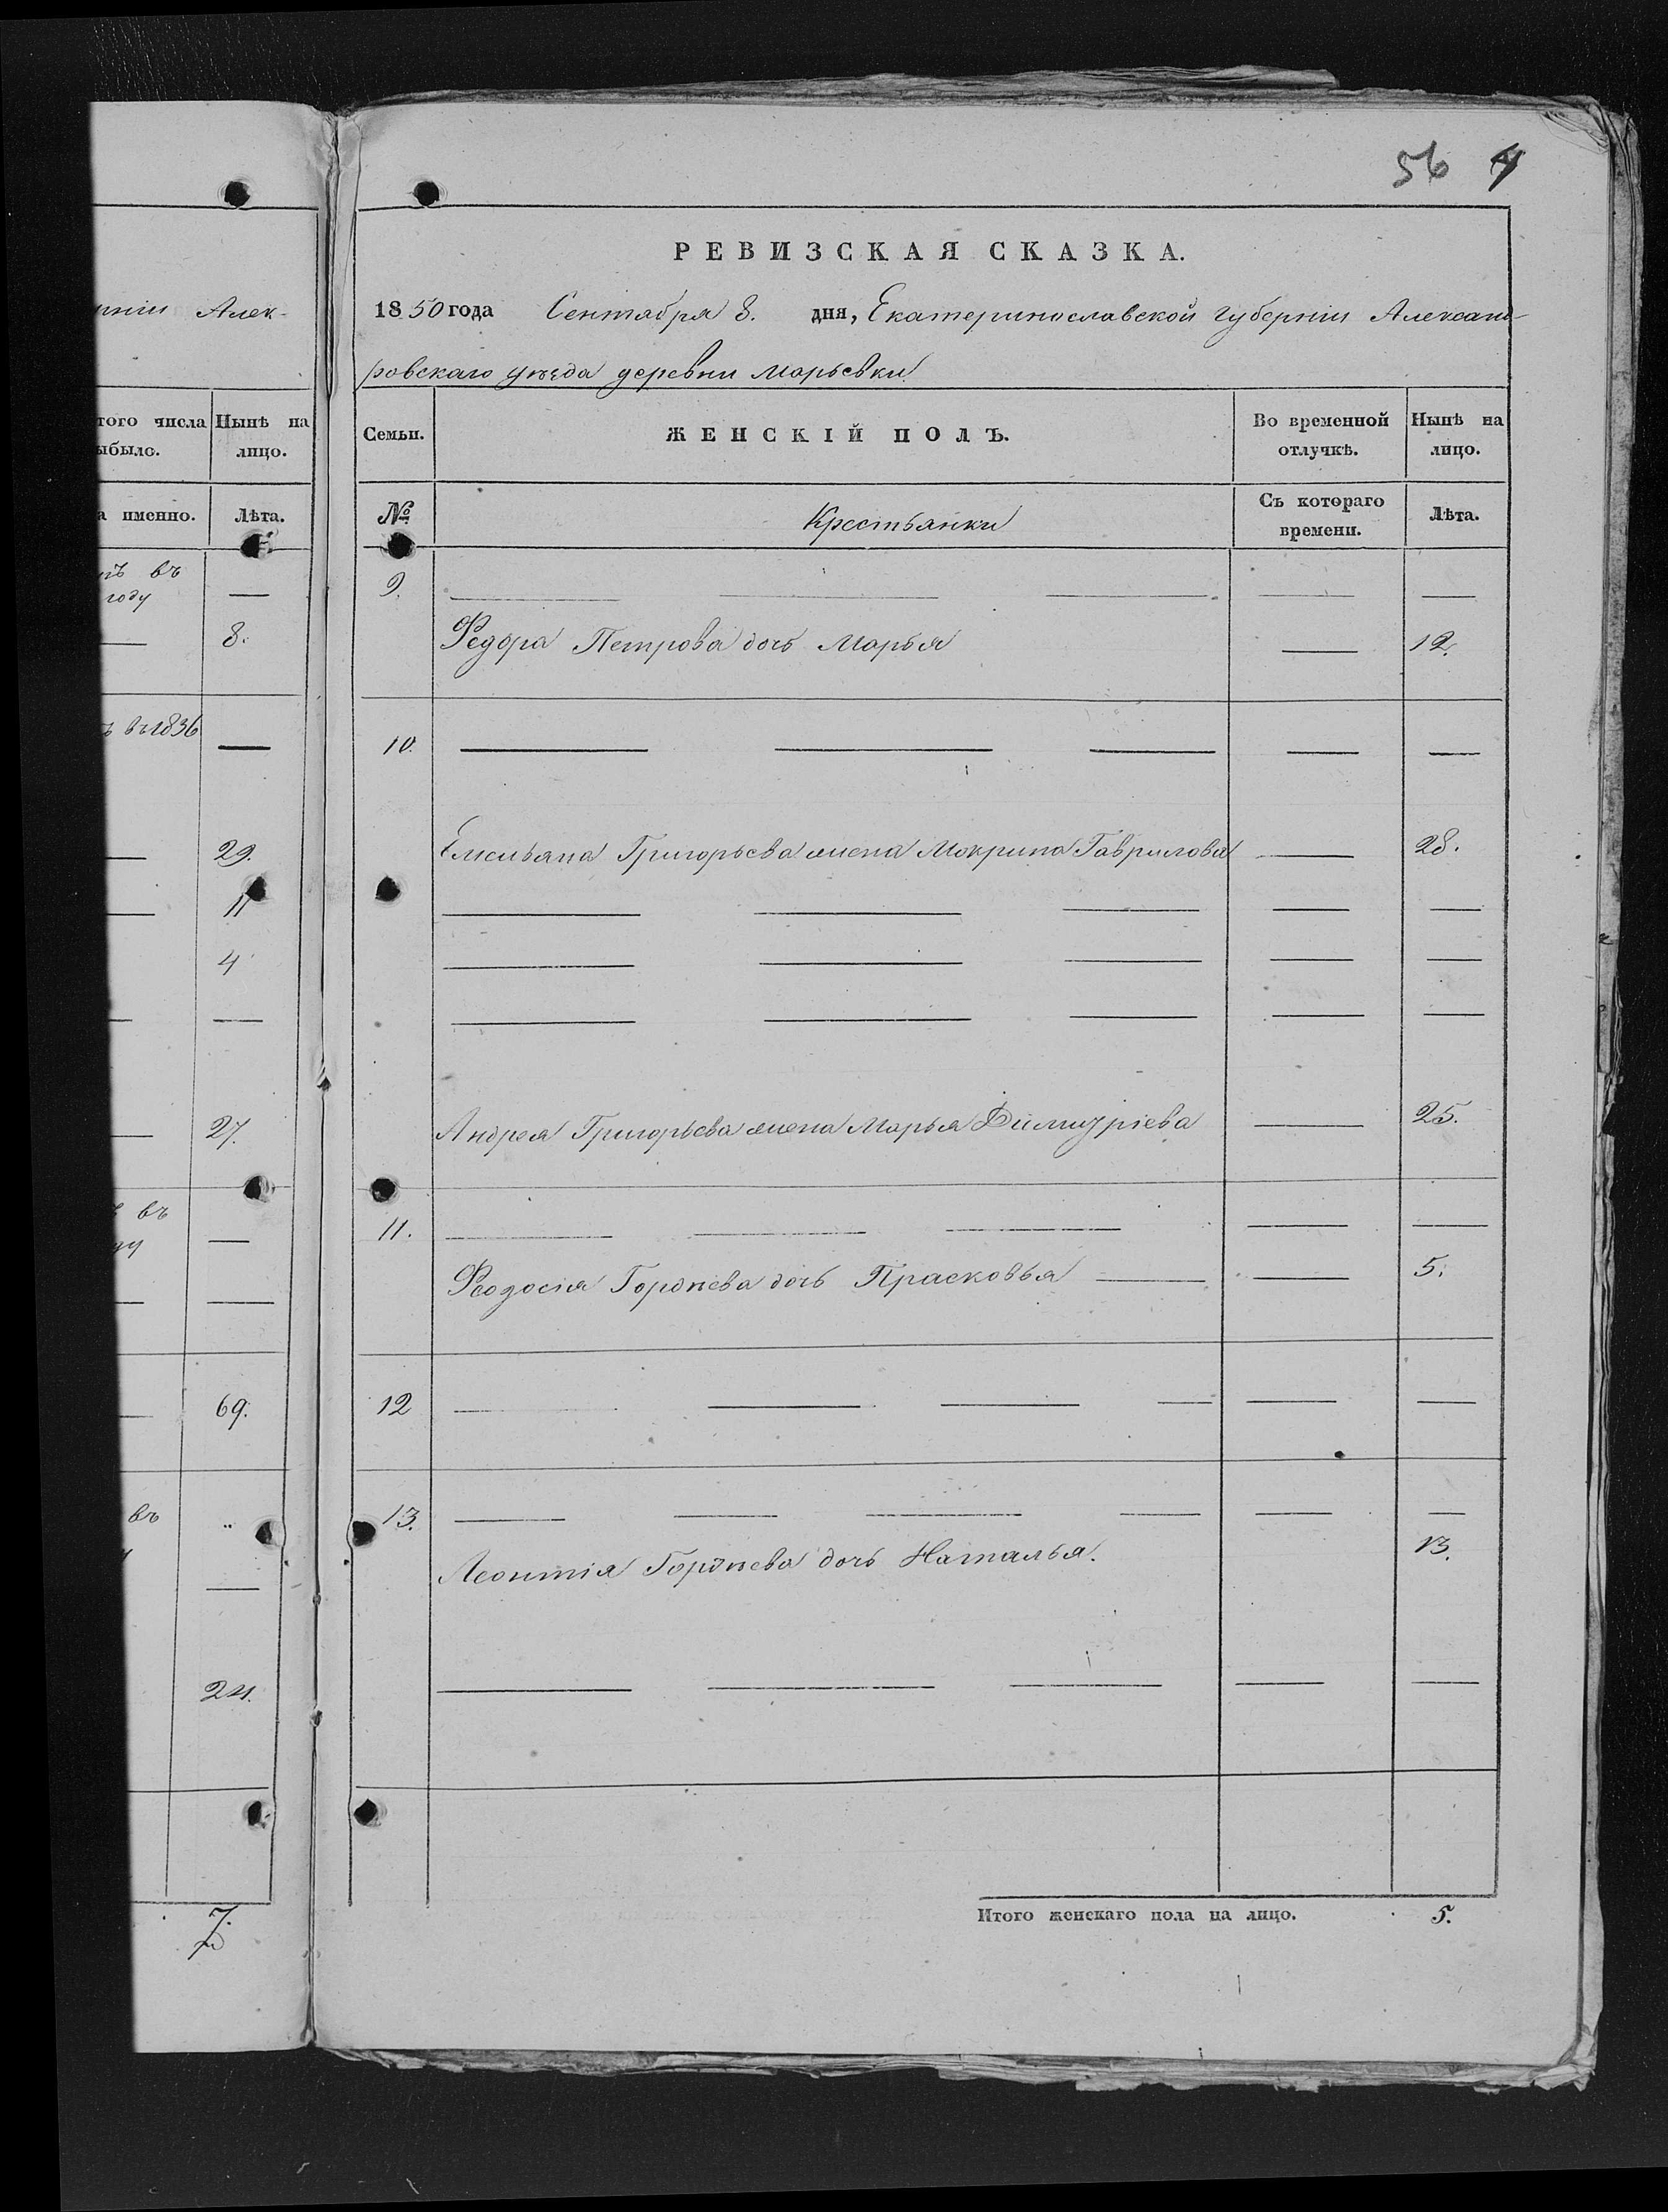 56 4
РЕВИЗСКАЯ СКАЗКА.
1850 года Сентября 8. дня, Екатеринославской губерніи Александ-
ровскаго уѣзда деревни Марьевки
Семьи. ЖЕНСКІЙ ПОЛЪ. Во временной отлучкѣ. Нынѣ на лицо.
№ Крестьянки Съ котораго времени. Лѣта.
9. — — — — —
Федора Петрова дочь Марья — 12.
10. — — — — —
Емельяна Григорьева жена Мокрина Гаврилова — 28.
— — — — —
— — — — —
— — — — —
Андрея Григорьева жена Марья Димитріева — 25.
11. — — — — —
Феодосія Гордѣева дочь Прасковья — — 5.
12 — — — — — —
13. — — — — — —
Леонтія Гордѣева дочь Наталья. 13.
— — — — —
Итого женскаго пола на лицо. 5.
рніи Алек-
того числа Нынѣ на
ыбыло. лицо.
а именно. Лѣта.
въ
году —
— 8.
въ 1836 —
— 29.
— 11
— 4
— —
— 27.
въ
—
— —
— 69.
въ „
—
24.
7.